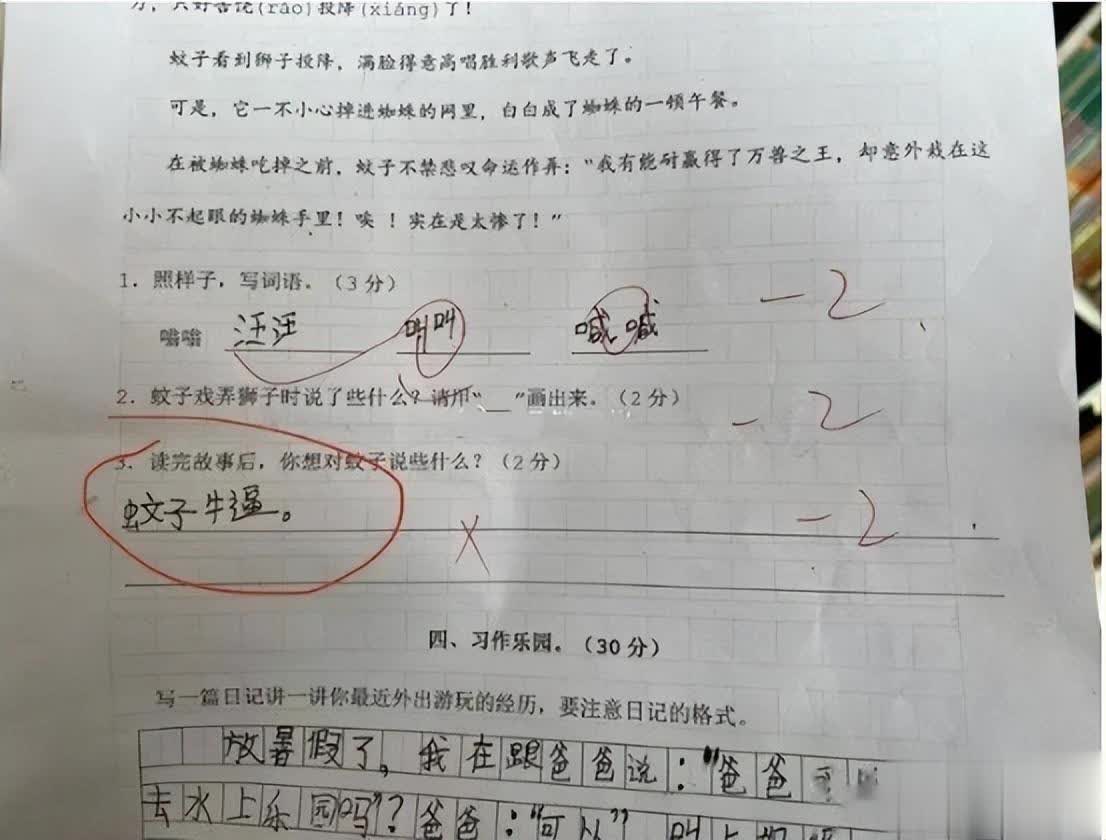 力，只好告饶(ráo)投降(xiáng)了！
蚊子看到狮子投降，满脸得意高唱胜利歌声飞走了。
可是，它一不小心掉进蜘蛛的网里，白白成了蜘蛛的一顿午餐。
在被蜘蛛吃掉之前，蚊子不禁悲叹命运作弄："我有能耐赢得了万兽之王，却意外栽在这
小小不起眼的蜘蛛手里！唉！实在是太惨了！"
1. 照样子，写词语。（3分）
-2
嗡嗡 汪汪 叫叫 喊喊
2. 蚊子戏弄狮子时说了些什么？请用"__"画出来。（2分）
-2
3. 读完故事后，你想对蚊子说些什么？（2分）
蚊子牛逼。
-2
四、习作乐园。（30分）
写一篇日记讲一讲你最近外出游玩的经历，要注意日记的格式。
放暑假了，我在跟爸爸说："爸爸
去水上乐园吗"？爸爸："可以"